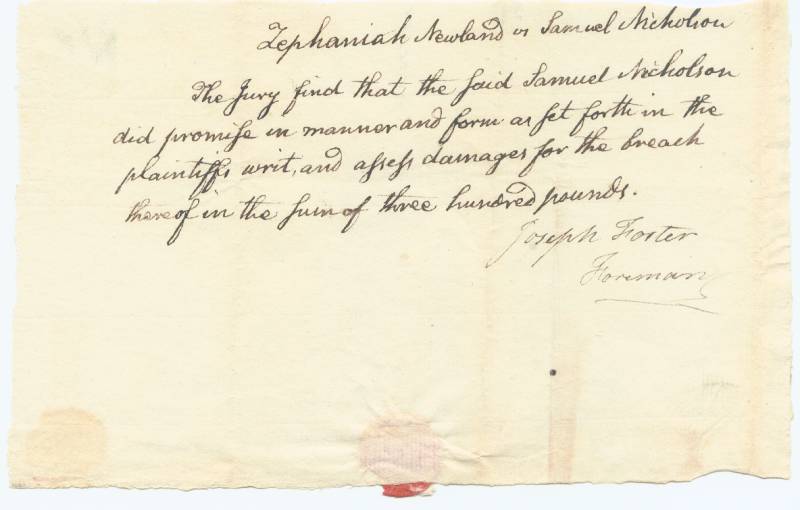 Zephaniah Newland vs Samuel Nicholson
The Jury find that the said Samuel Nicholson
did promise in manner and form as set forth in the
plaintiffs writ, and assess damages for the breach
thereof in the sum of three hundred pounds.
Joseph Foster
Foreman